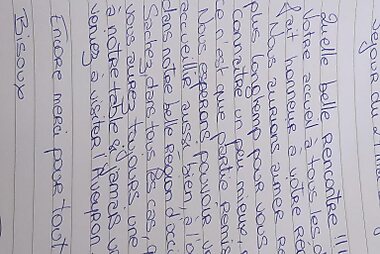 séjour du
Quelle belle rencontre !!!
Votre accueil à tous les
fait honneur à votre
Nous aurions aimer
plus longtemp pour vous
connaître un peu mieux,
ce n'est que partie remis
Nous espérons pouvoir v
accueillir aussi bien, à
dans notre belle Région d'occi
Sachez dans tous les cas,
vous aurez toujours une
à notre table si jamais v
veniez à visiter l'Aveyron.
Encore merci pour tout
Bisoux